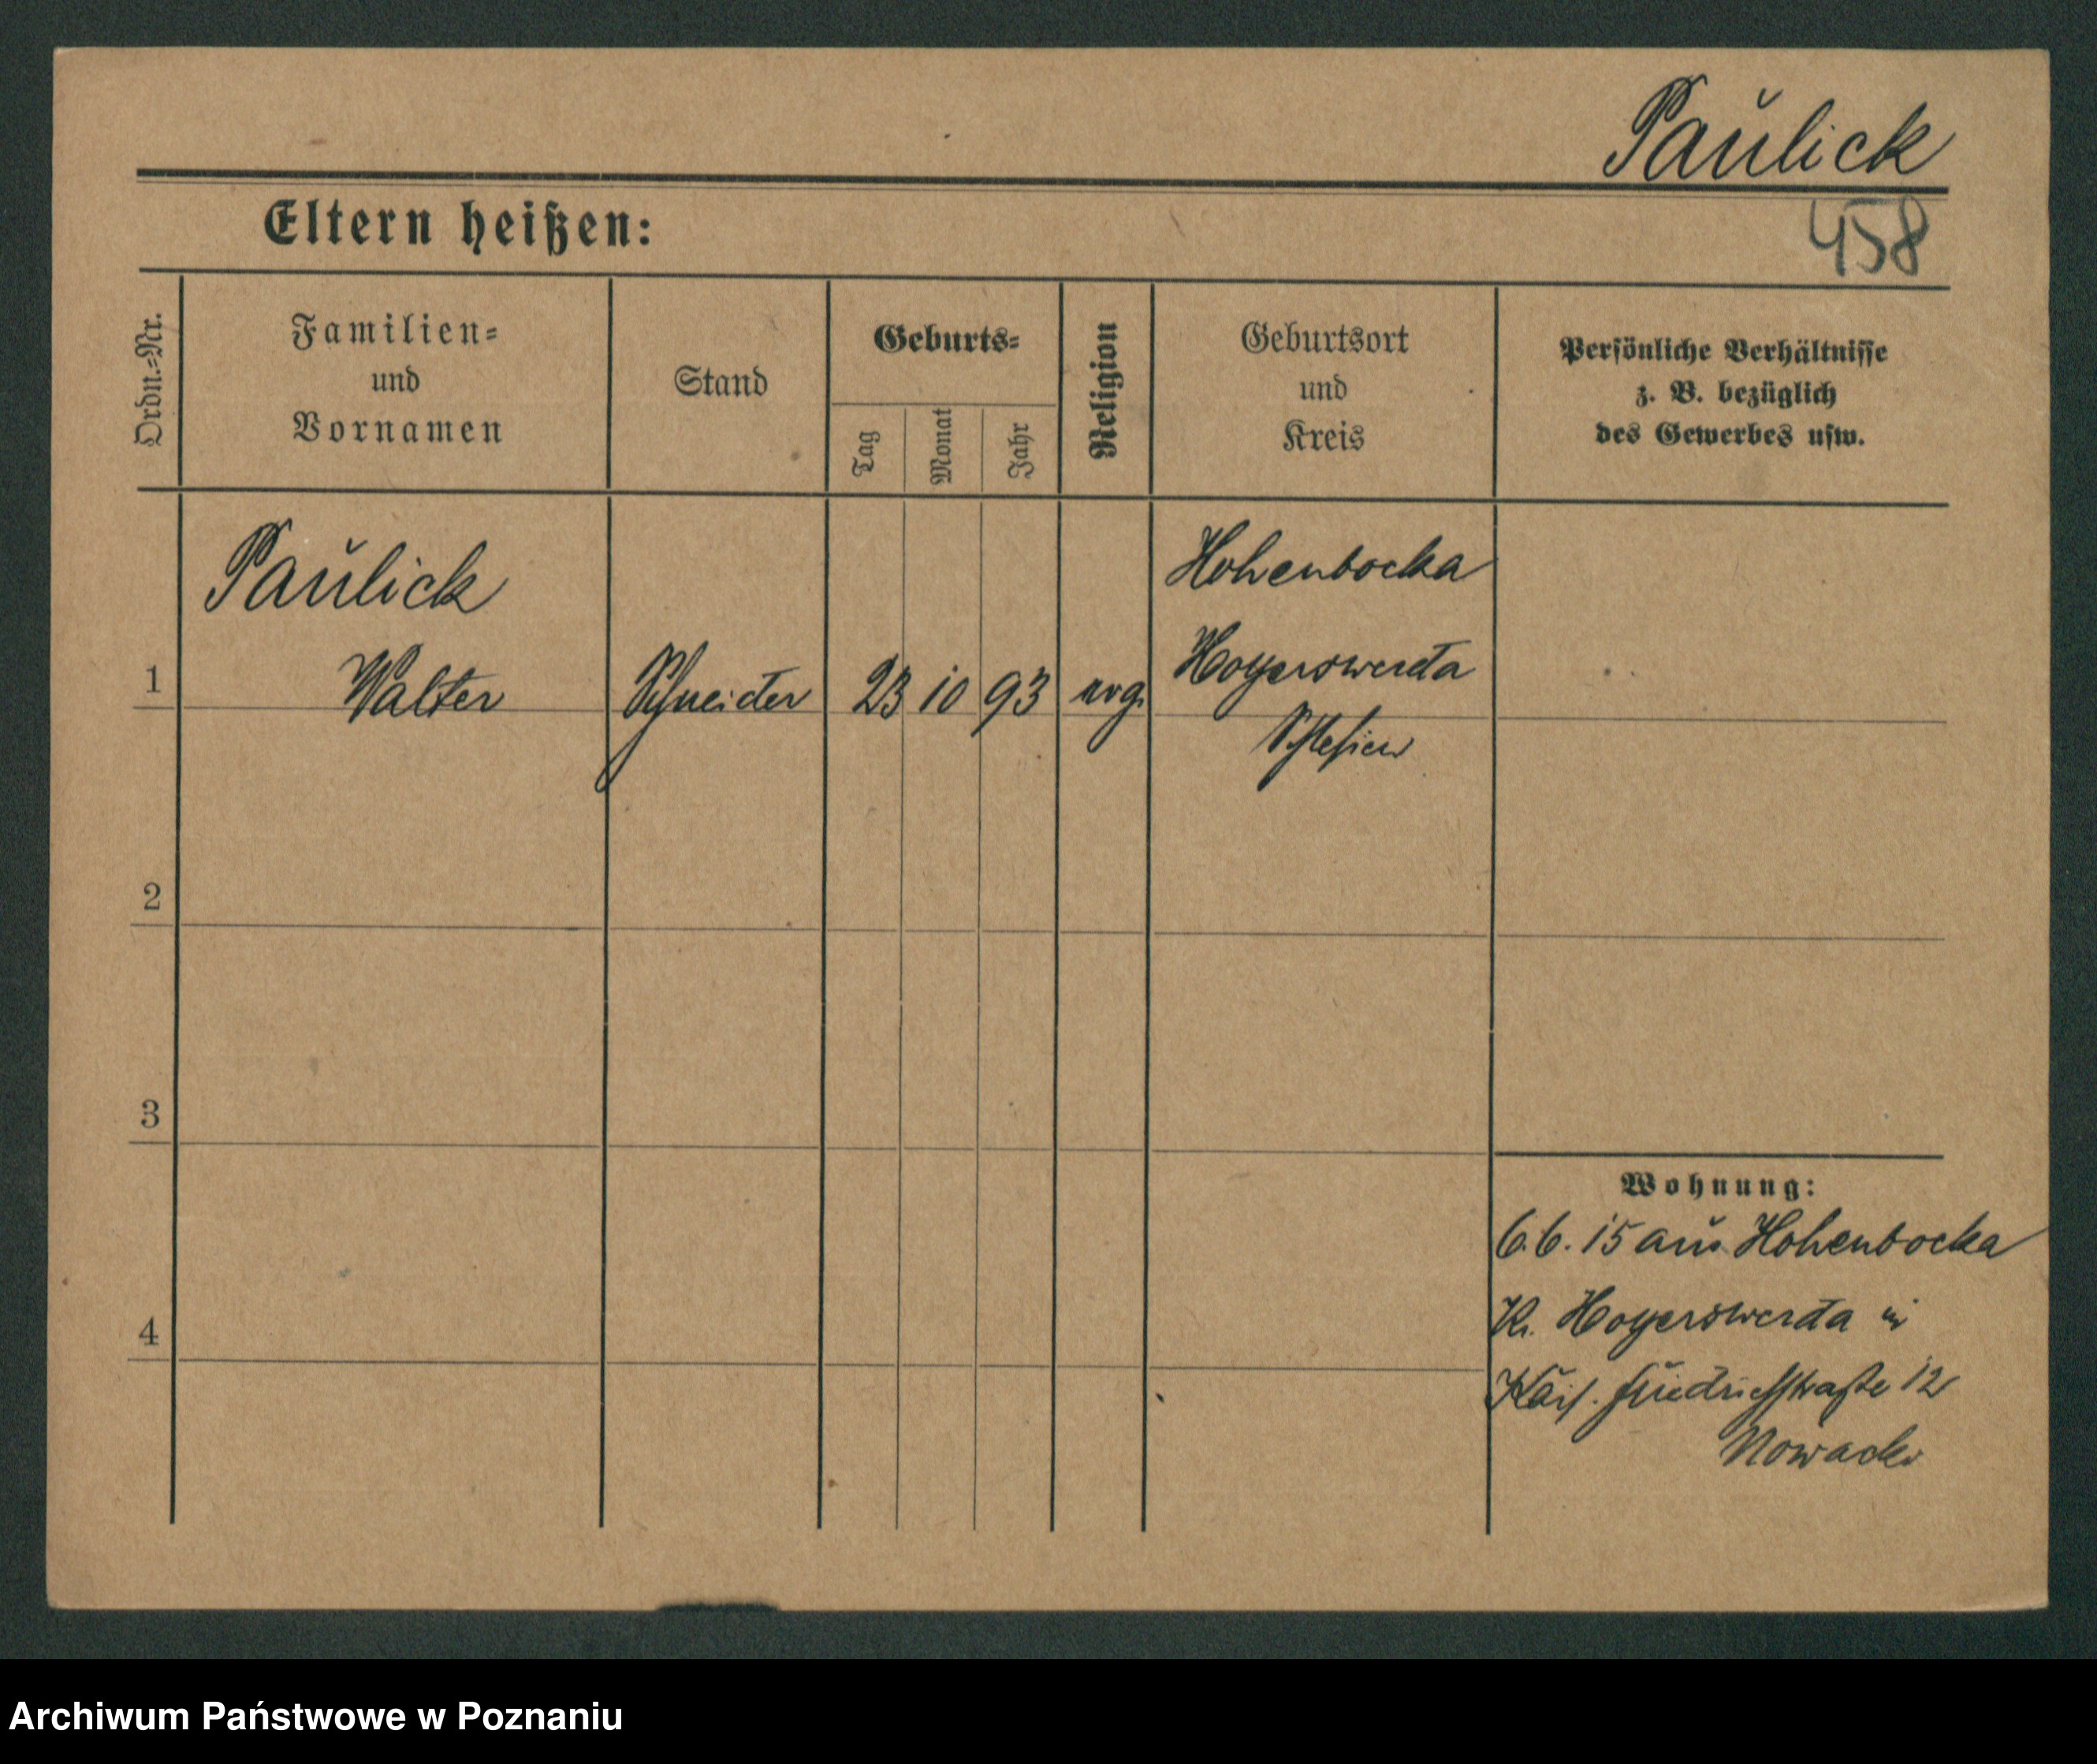 Paulick
458
Eltern heißen:
Ordn.=Nr.
Familien=
und
Vornamen
Stand
Geburts=
Tag
Monat
Jahr
Religion
Geburtsort
und
Kreis
Persönliche Verhältnisse
z. B. bezüglich
des Gewerbes usw.
1
Paulick
Walter
Schneider
23
10
93
evg.
Hohenbocka
Hoyerswerda
Schlesien
2
3
4
Wohnung:
6.6.15 aus Hohenbocka
Kr. Hoyerswerda in
Kais. Friedrichstraße 12
Archiwum Państwowe w Poznaniu